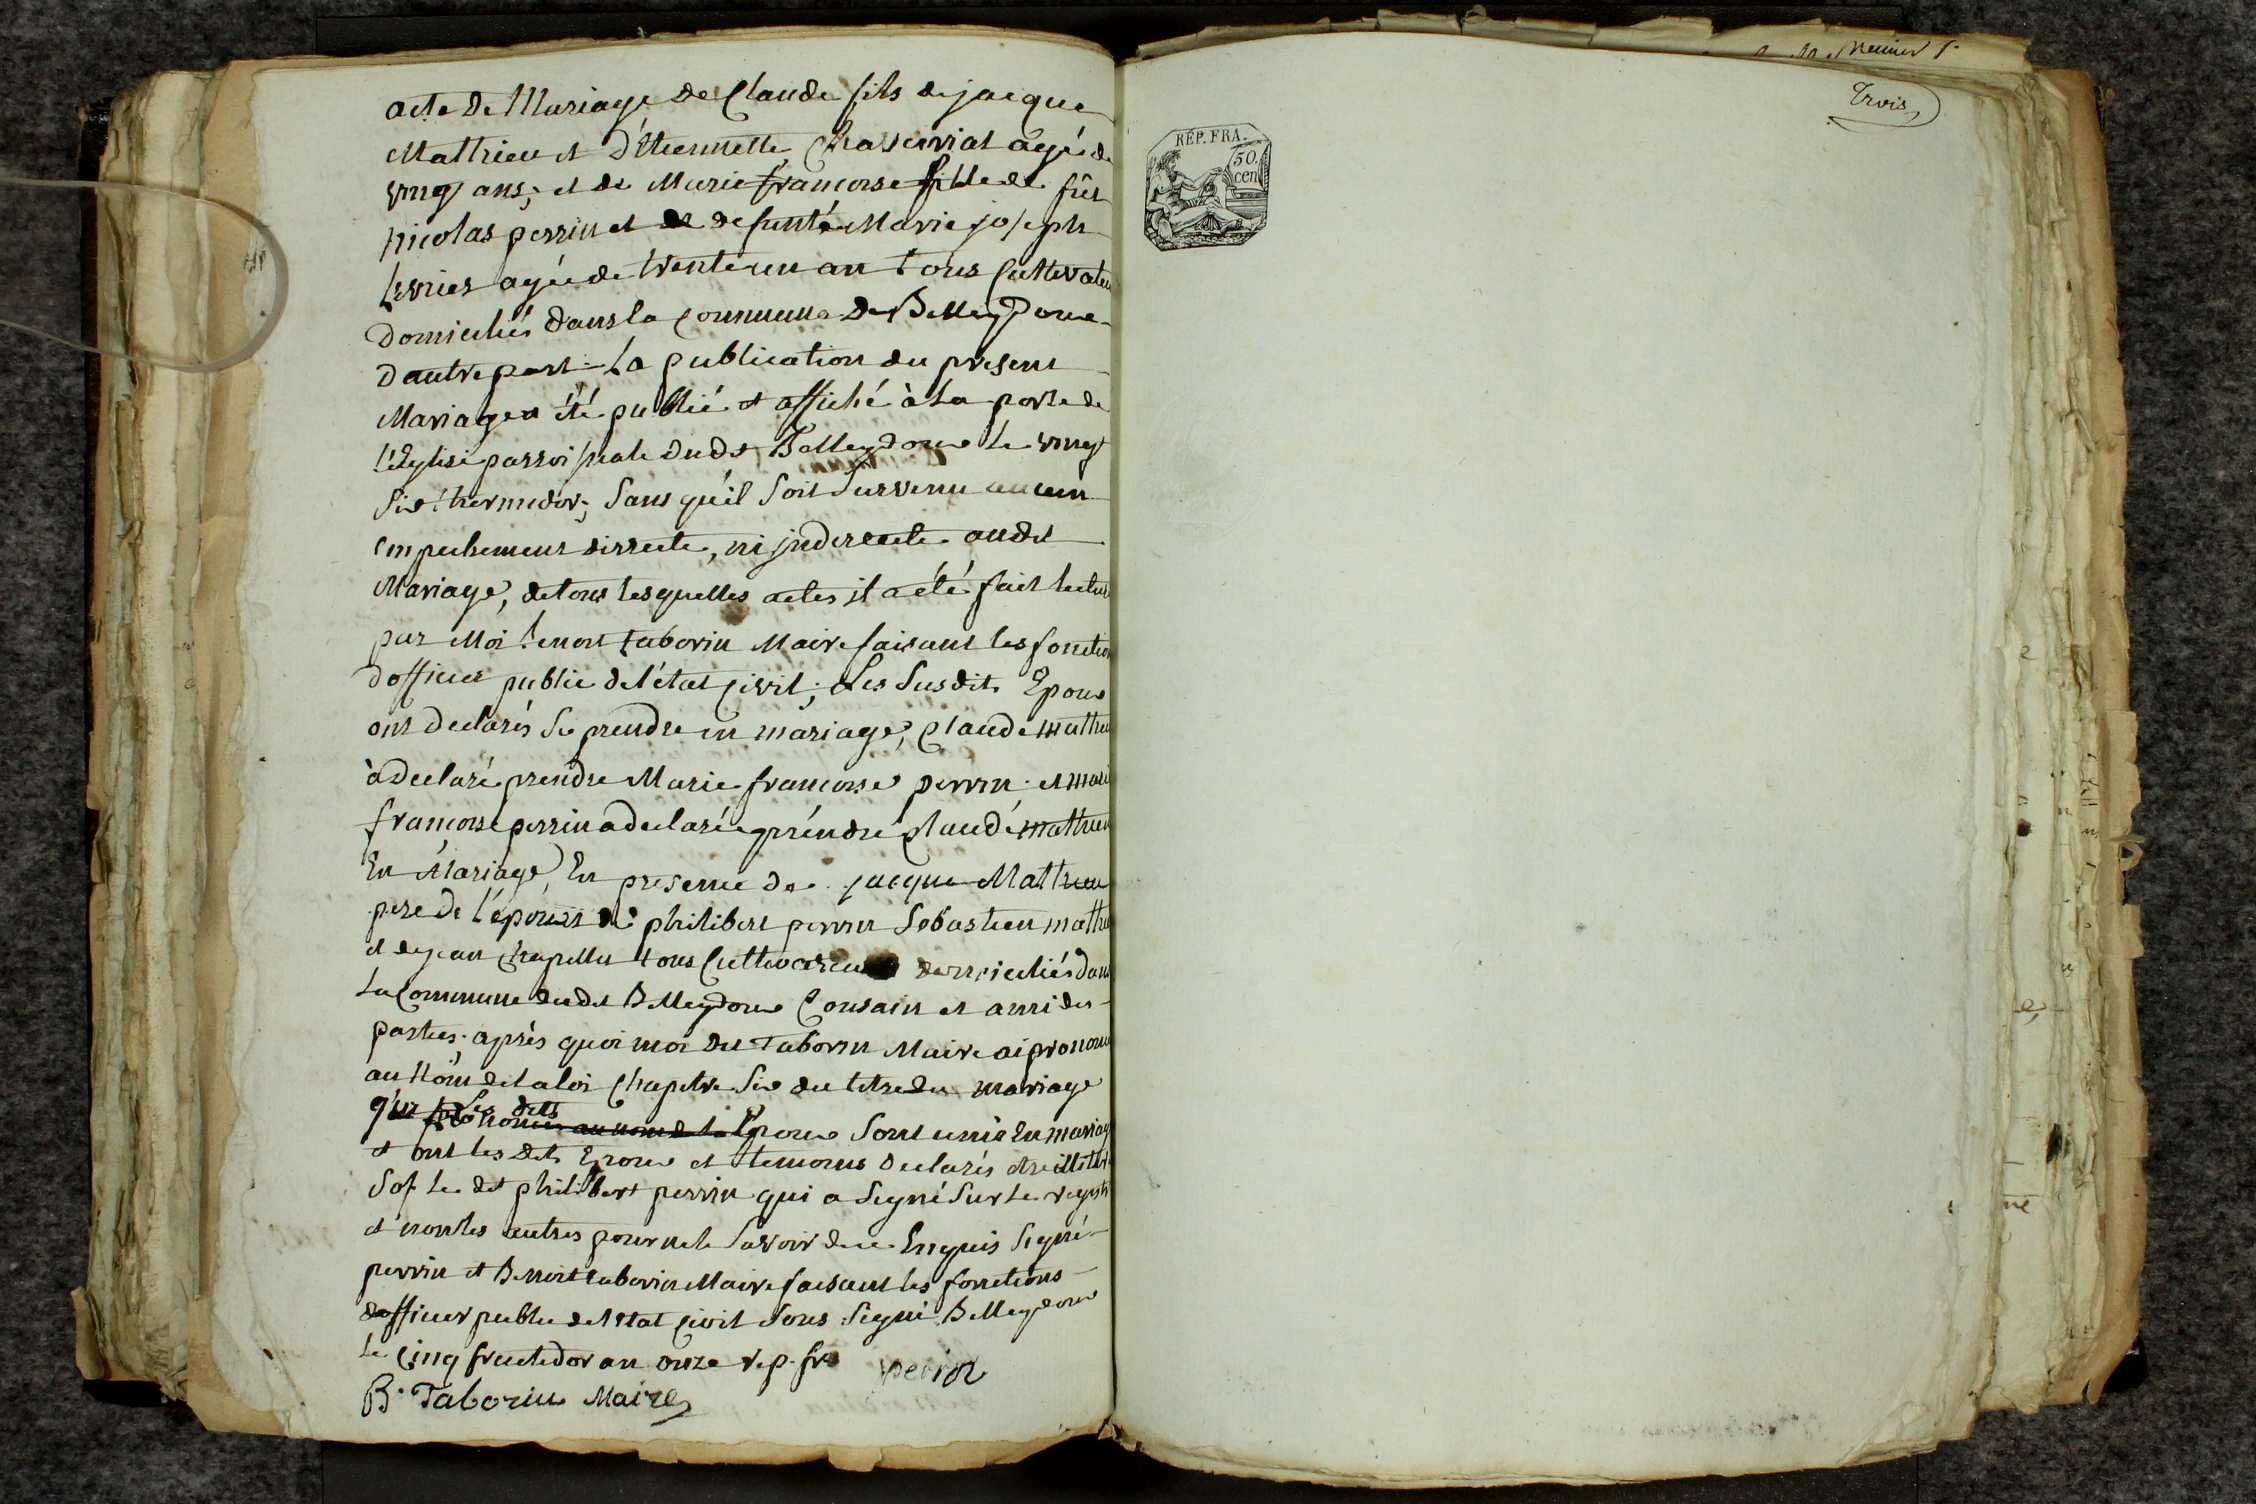 acte de Mariage de Claude fils de jacque
Mathieu et d'Etiennette age de
vingt ans; et de Marie francoise fille de
Nicolas perrin et de defunte Marie joseph
agée de trente un an tous Cultivateu
Domiciliés dans la Commune de Belleydoux
d'autre part La publication du present
Mariage a été publié et affiché à la porte de
l'Eglise parroissiale dudt Belleydoux le vingt
Six thermidor; Sans qu'il Soit Survenu aucun
empechement dirrecte, ni jndirecte audt
Mariage, de tous lesquelles actes il a été fait lectur
par Moi Benoit taborin Maire faisant les fonction
d'officier public de l'état Civil; Les Susdits Epoux
ont declarés Se prendre en mariage, Claude mathieu
à declaré prendre Marie francoise perrin et marie
francoise perrin a declarée prendre Claude mathieu
En Mariage, En presence de jacque Mathieu
pere de l'époux de philibert perrin Sebastien mathieu
et de jean tous Cultivateurs domiciliés dans
La Commune dudt Belleydoux Cousain et ami des
parties. après quoi moi dit Taborin Maire ai prononcé
au Nom de la loi Chapitre Six du titre du mariage
que Les dits
Epoux Sont unis En mariage
et ont les dits Epoux et temoins declarés
Sof le dt philibert perrin qui a Signé Sur le registre
et non les autres pour ne le Savoir de ce Enquis Signé
perrin et Benoit taborin Maire faisant les fonctions
d'officier public de l'état Civil Sous Signé Belleydoux
le Cinq fructidor an onze rep. fra perin
B. Taborin Maire
Trois
RÉP. FRA.
50.
cen